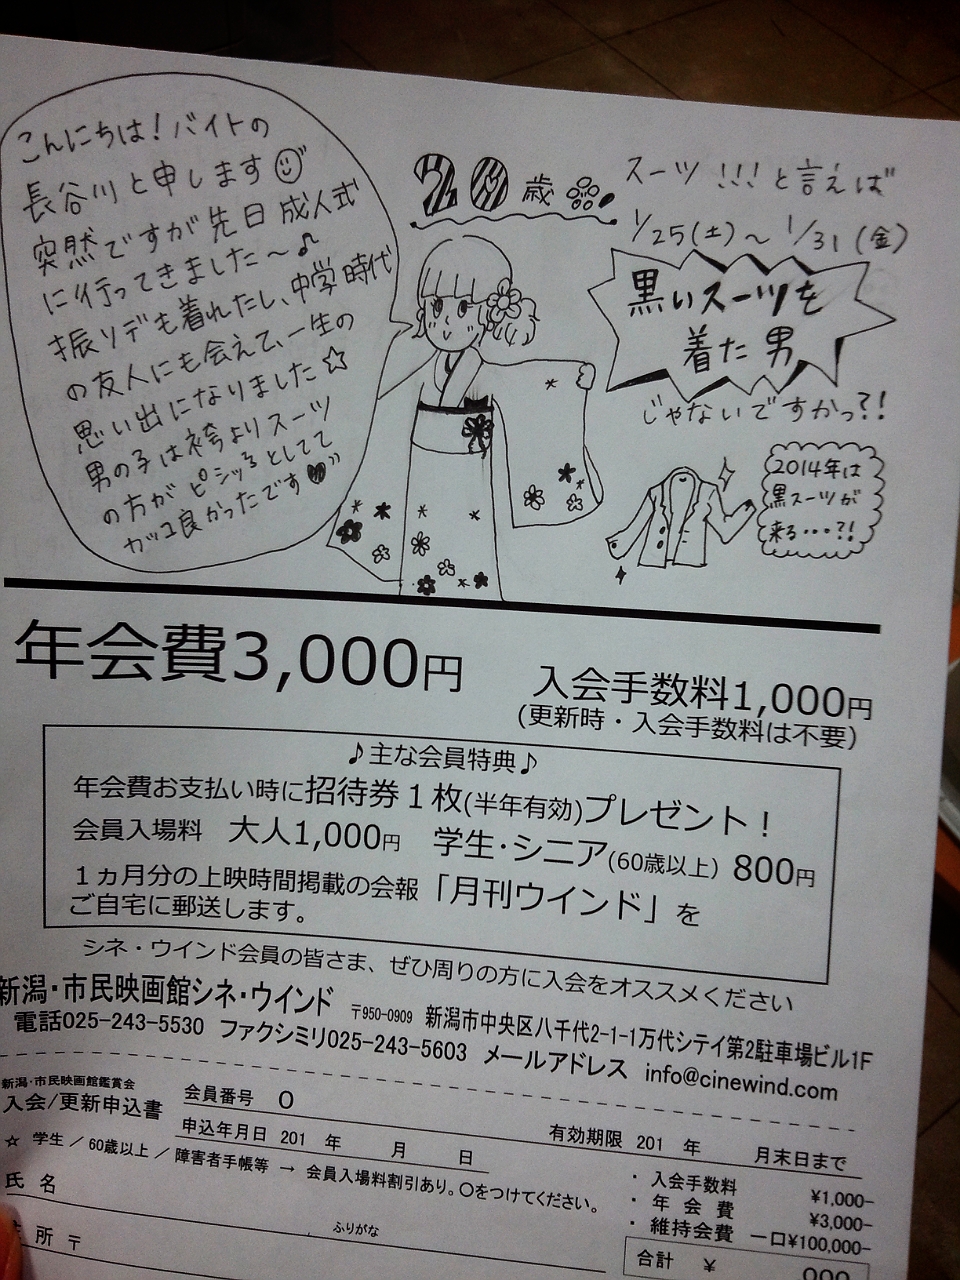 こんにちは！バイトの
長谷川と申します
突然ですが先日成人式
に行ってきました～♪
振ソデも着れたし、中学時代
の友人にも会えて、一生の
思い出になりました☆
男の子は袴よりスーツ
の方がピシッとしてて
カッコ良かったです♥
20歳
スーツ!!!と言えば
1/25(土)～1/31(金)
黒いスーツを
着た男
じゃないですかっ?!
2014年は
黒スーツが
来る…?!
年会費3,000円
入会手数料1,000円
(更新時・入会手数料は不要)
♪主な会員特典♪
年会費お支払い時に招待券１枚(半年有効)プレゼント！
会員入場料 大人1,000円 学生・シニア(60歳以上) 800円
１ヵ月分の上映時間掲載の会報「月刊ウインド」を
ご自宅に郵送します。
シネ・ウインド会員の皆さま、ぜひ周りの方に入会をオススメください
新潟・市民映画館シネ・ウインド 〒950-0909 新潟市中央区八千代2-1-1万代シテイ第2駐車場ビル1F
電話025-243-5530 ファクシミリ025-243-5603 メールアドレス info@cinewind.com
新潟・市民映画館鑑賞会
入会/更新申込書
会員番号 O
申込年月日 201 年 月 日
有効期限 201 年 月末日まで
☆ 学生／60歳以上／障害者手帳等 → 会員入場料割引あり。○をつけてください。
・入会手数料 ¥1,000-
・年会費 ¥3,000-
・維持会費 一口¥100,000-
氏名
ふりがな
住所 〒
合計 ¥ 000